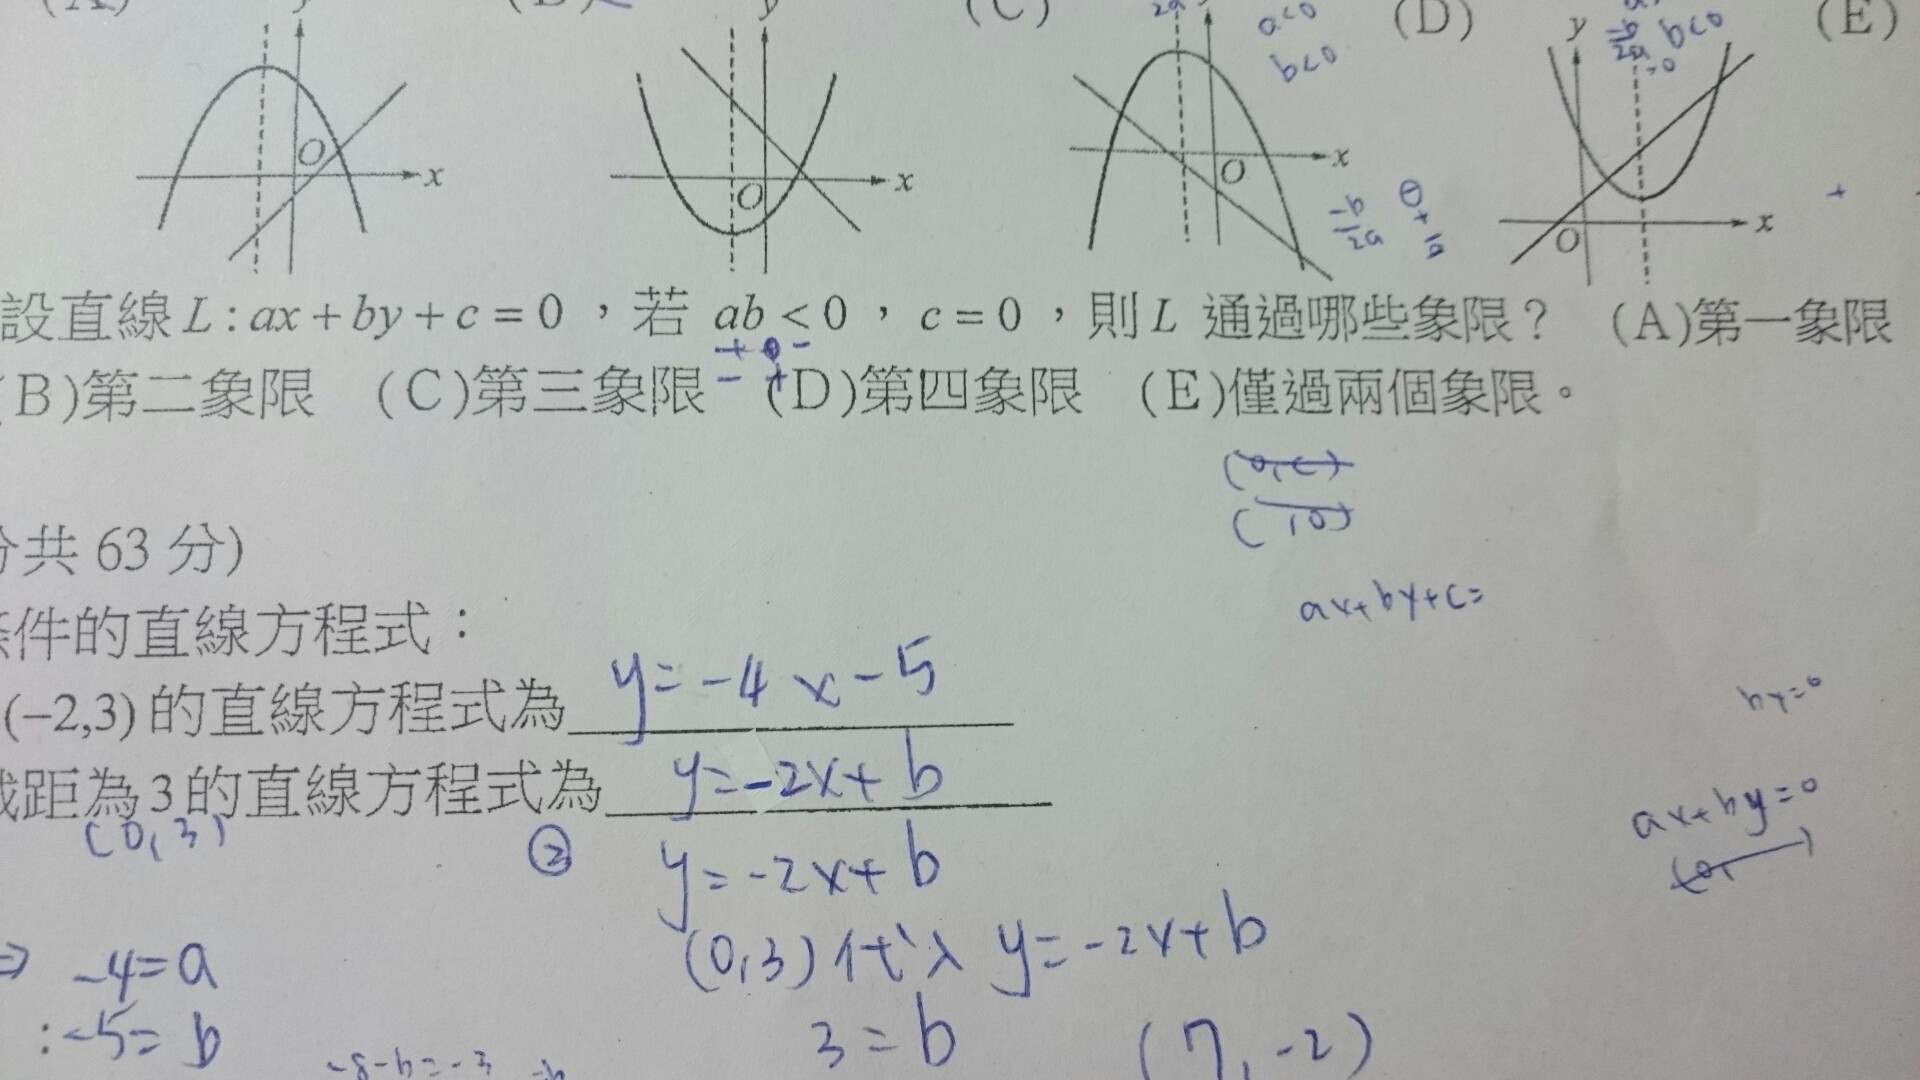 (A) (B) (C) (D) (E)
y y y
a<0
b<0
b<0
O x O x O x O x
-b/2a
設直線 L : ax + by + c = 0 ，若 ab < 0 ， c = 0 ，則 L 通過哪些象限？ (A)第一象限
+ -
- +
(B)第二象限 (C)第三象限 (D)第四象限 (E)僅過兩個象限。
(0,c)
( ,0)
分共 63 分)
ax+by+c=
條件的直線方程式：
(–2,3) 的直線方程式為 y=-4x-5
by=0
截距為 3 的直線方程式為 y=-2x+b
(0,3)
② y=-2x+b
ax+by=0
(0,
⇒ -4=a
(0,3)代入 y=-2x+b
:-5=b
3=b
(7,-2)
-8-b=-3